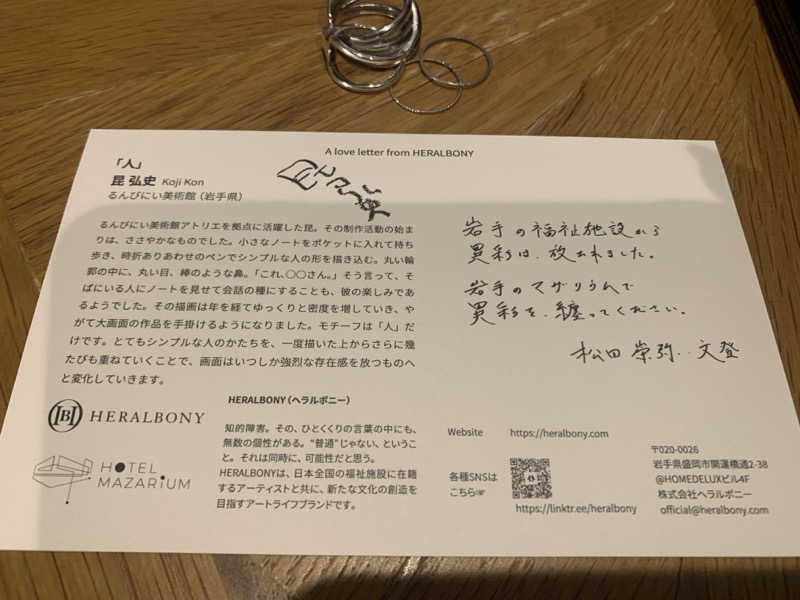 A love letter from HERALBONY
「人」
昆 弘史 Koji Kon
るんびにい美術館（岩手県）
るんびにい美術館アトリエを拠点に活躍した昆。その制作活動の始ま
りは、ささやかなものでした。小さなノートをポケットに入れて持ち
歩き、時折ありあわせのペンでシンプルな人の形を描き込む。丸い輪
郭の中に、丸い目、棒のような鼻。「これ、○○さん。」そう言って、そ
ばにいる人にノートを見せて会話の種にすることも、彼の楽しみであ
るようでした。その描画は年を経てゆっくりと密度を増していき、や
がて大画面の作品を手掛けるようになりました。モチーフは「人」だ
けです。とてもシンプルな人のかたちを、一度描いた上からさらに幾
たびも重ねていくことで、画面はいつしか強烈な存在感を放つものへ
と変化していきます。
岩手の福祉施設から
異彩は、放たれました。
岩手のマザリウムで
異彩を、纏ってください。
松田 崇弥・文登
HERALBONY
HOTEL
MAZARIUM
HERALBONY（ヘラルボニー）
知的障害。その、ひとくくりの言葉の中にも、
無数の個性がある。“普通”じゃない、というこ
と。それは同時に、可能性だと思う。
HERALBONYは、日本全国の福祉施設に在籍
するアーティストと共に、新たな文化の創造を
目指すアートライフブランドです。
Website https://heralbony.com
各種SNSは
こちら☞
https://linktr.ee/heralbony
〒020-0026
岩手県盛岡市開運橋通2-38
@HOMEDELUXビル4F
株式会社ヘラルボニー
official@heralbony.com